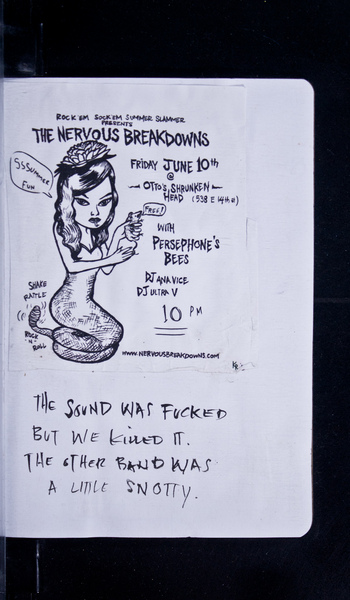 ROCK'EM SOCK'EM SUMMER SLAMMER
PRESENTS
THE NERVOUS BREAKDOWNS
SSSUMMER
FUN
FRIDAY JUNE 10th
@
OTTO'S SHRUNKEN
HEAD (538 E 14th)
FREE!
WITH
PERSEPHONE'S
BEES
DJ ANA VICE
DJ ULTRA V
10 PM
SHAKE
RATTLE
ROCK
'N'
ROLL
www.NERVOUSBREAKDOWNS.com
THE SOUND WAS FUCKED
BUT WE KILLED IT.
THE OTHER BAND WAS
A LITTLE SNOTTY.